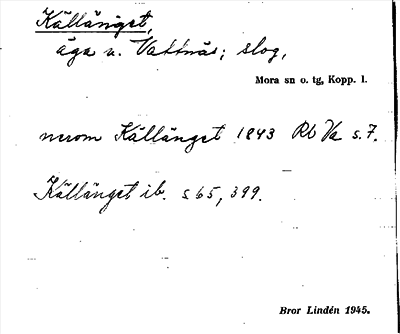 Källänget,
äga u. Vattnäs; slog,
Mora sn o. tg, Kopp. l.
norom Källänget 1843 Rb Va s. 7.
Källänget ib. s 65, 399.
Bror Lindén 1945.